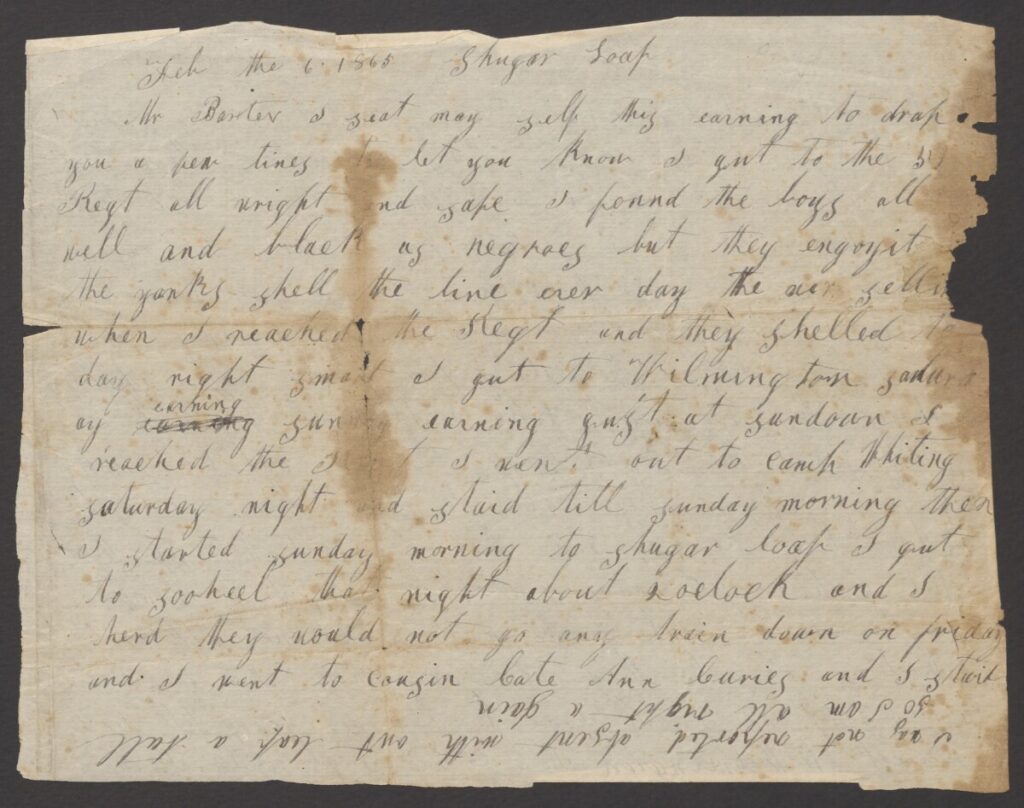 Feb the 6 1865 Shugar Loaf
Mr Baxter I seat may self this earning to drap
you a few lines to let you know I gut to the
Regt all wright and safe I found the boys all
well and black as negroes but they engoyit
the yanks shell the line ever day the wer sellin
when I reached the Regt and they shelled to
day right smart I gut to Wilmington saturd
ay earning sunday earning gust at sundown I
reached the I went out to camp Whiting
saturday night and staid till sunday morning then
I started sunday morning to shugar loaf I gut
to that night about oclock and I
herd they would not go any train down on friday
and I went to cousin Cate Ann Curies and I staid
I was not reported absent with out leaf a tall
so I am all right a gain